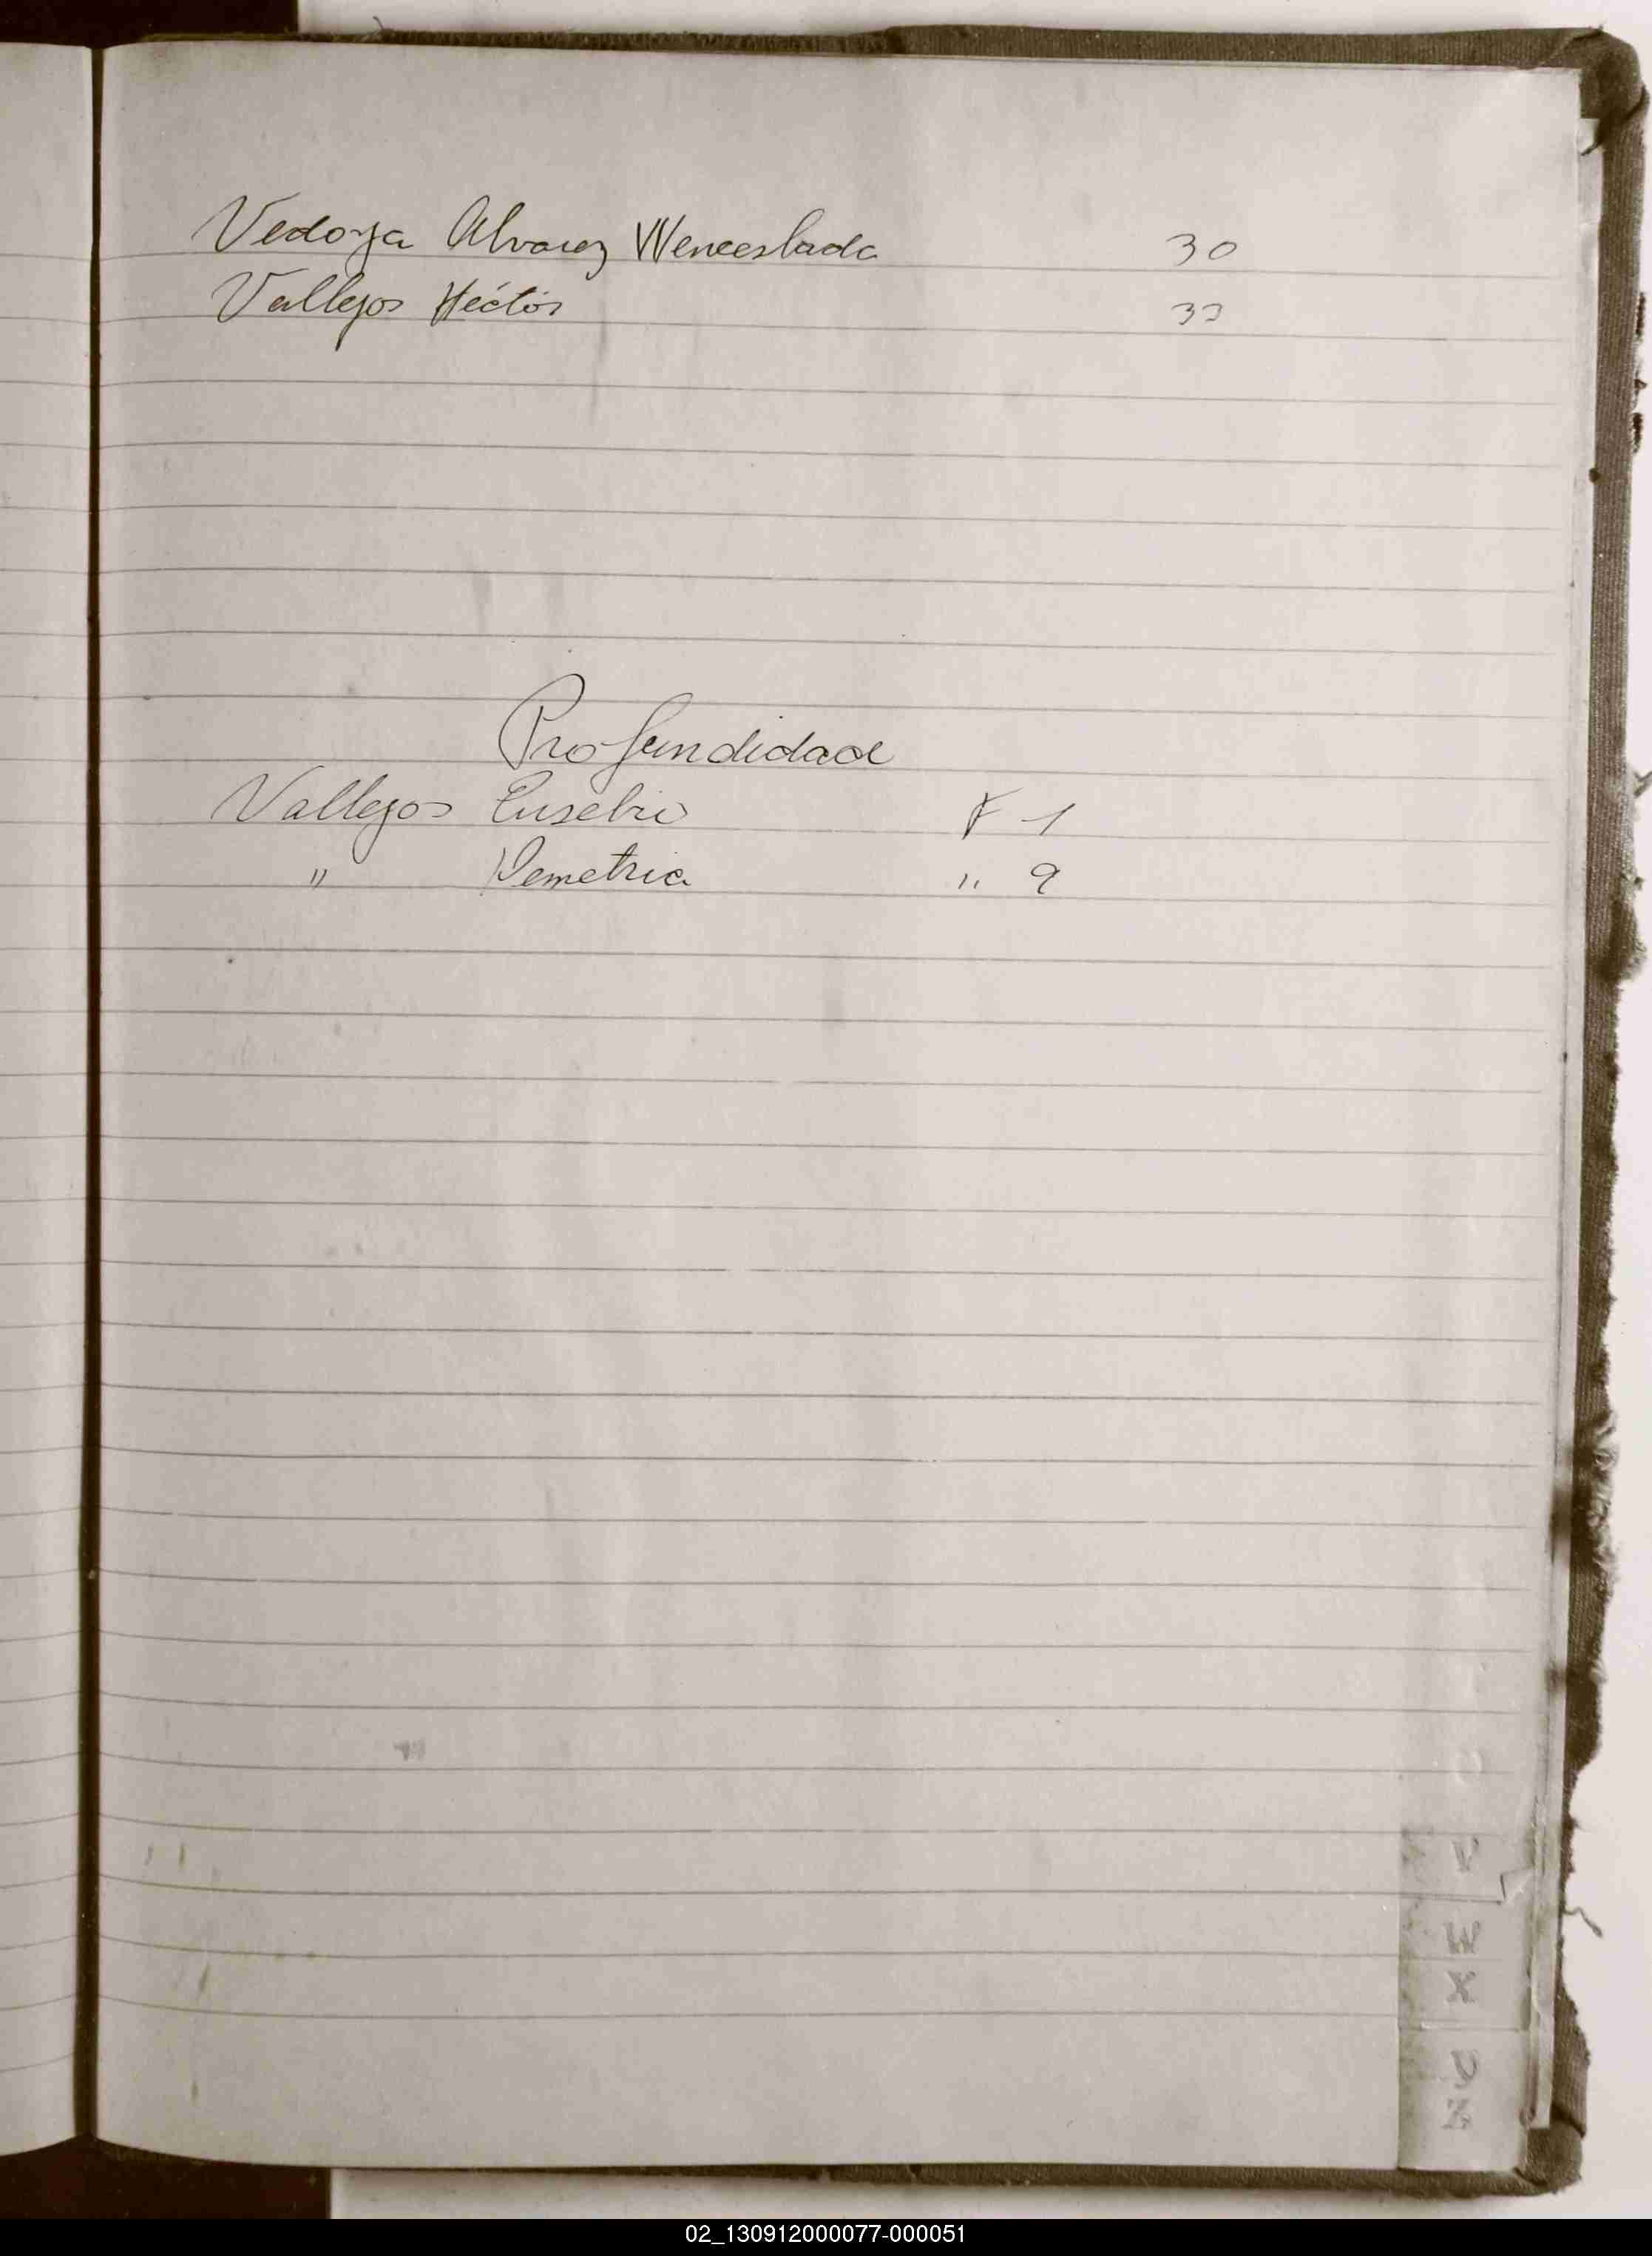 Vedoya Alvarez Wenceslada 30
Vallejos Héctor 33
Profundidad
Vallejos Eusebio F 1
" Demetria " 9
V
W
X
02_130912000077-000051